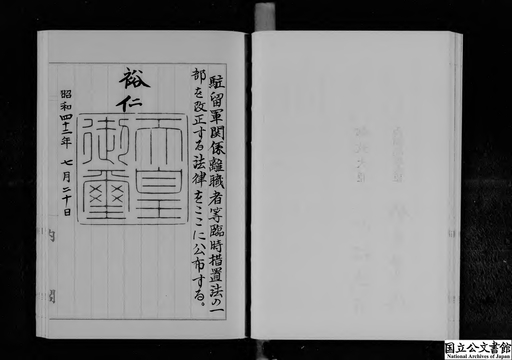 駐留軍関係離職者等臨時措置法の一
部を改正する法律をここに公布する。
裕仁
天皇
御璽
昭和四十二年七月二十日
内閣
国立公文書館
National Archives of Japan